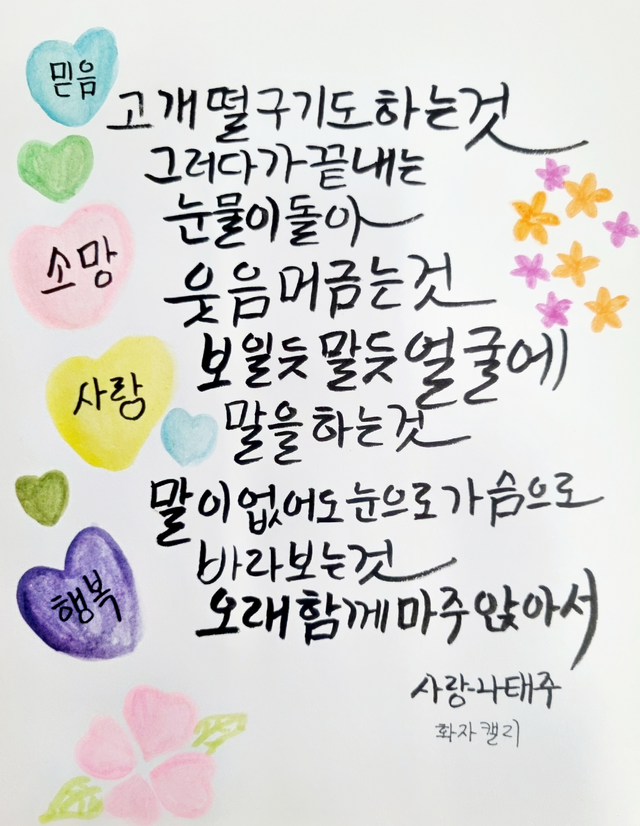 믿음
고개 떨구기도 하는 것
그러다가 끝내는
눈물이 돌아
소망
웃음 머금는 것
보일듯 말듯 얼굴에
사랑
말을 하는 것
말이 없어도 눈으로 가슴으로
바라보는 것
행복
오래 함께 마주 앉아서
사랑-나태주
화자캘리